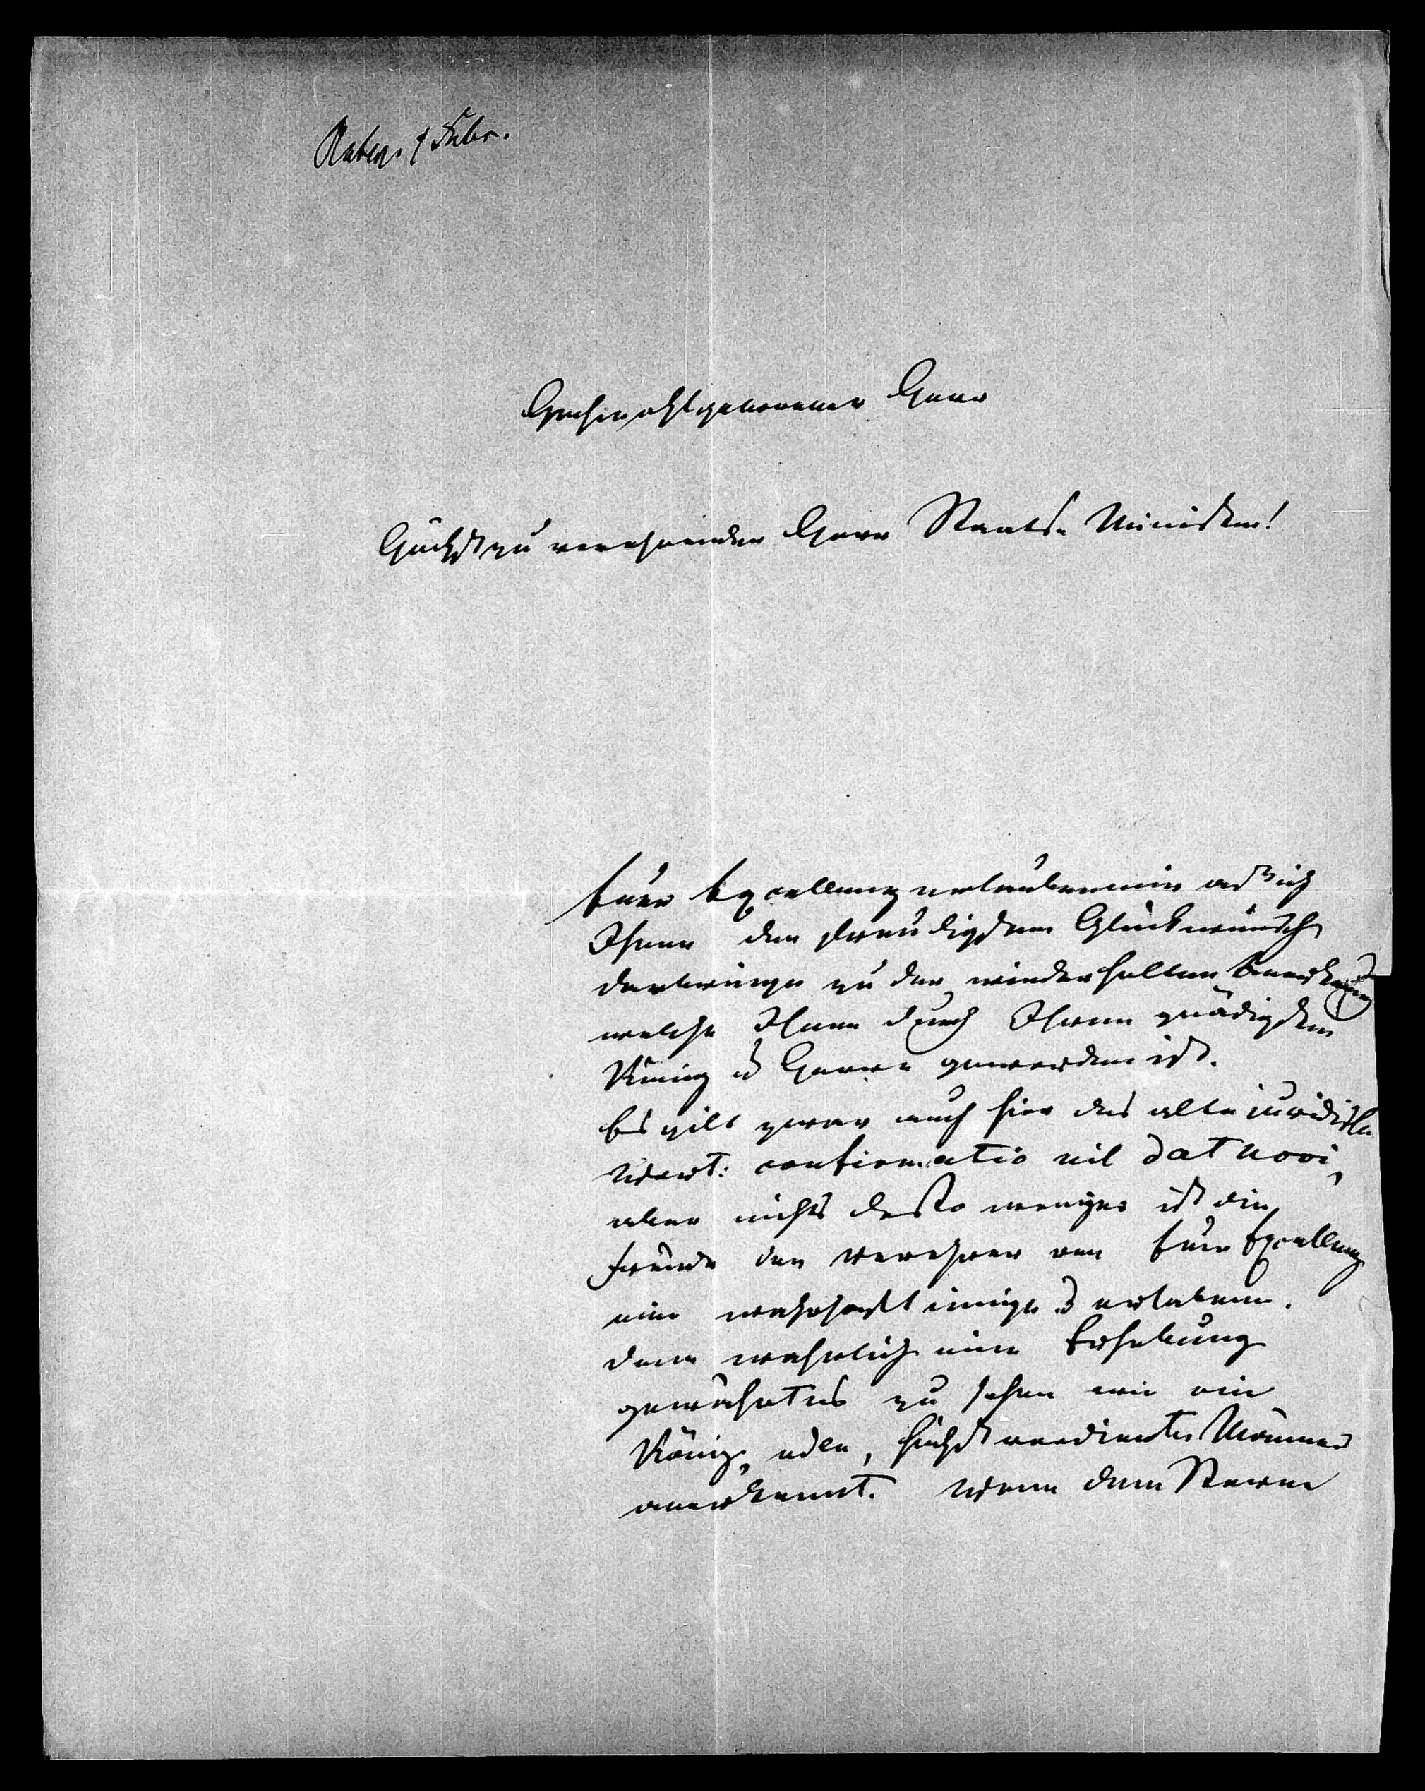 Hochwohlgeborener Herr
Höchstzuverehrender Herr Staats-Minister!
Euer Excellenz erlauben mir daß ich
Ihnen den freudigsten Glückwunsch
darbringe zu der wiederholten
welche Ihnen durch Ihren gnädigsten
König u Herrn geworden ist.
Es gilt zwar auch hier das alte juridische
Wort: confirmatio nil dat novi,
aber nichts desto weniger ist die
Freude der Verehrer von Euer Excellenz
eine wahrhaft innige u erhabene.
denn wahrlich eine Erhebung
gewährt es zu sehen wie ein
König edle, höchst verdiente Männer
anerkennt. Wenn dem Sterne